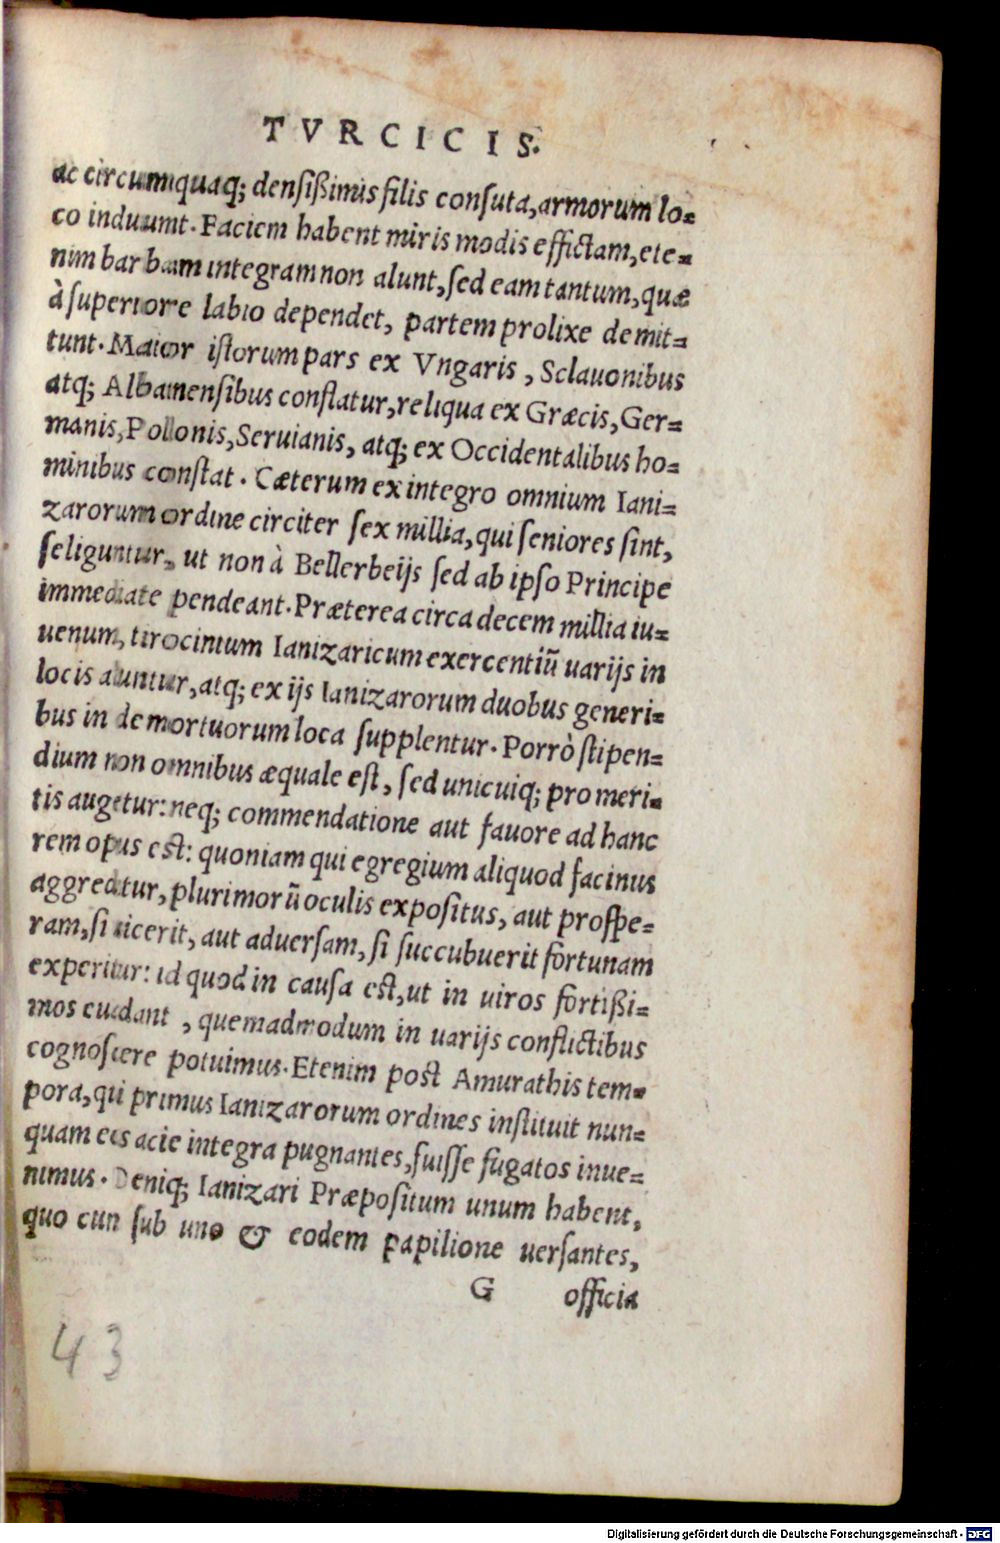 TVRCICIS.
ac circumquaq; densißimis filis consuta, armorum lo=
co induunt. Faciem habent miris modis effictam, ete=
nim barbam integram non alunt, sed eam tantum, quæ
à superiore labio dependet, partem prolixe demit=
tunt. Maior istorum pars ex Vngaris, Sclauonibus
atq; Albanensibus conflatur, reliqua ex Græcis, Ger=
manis, Pollonis, Seruianis, atq; ex Occidentalibus ho=
minibus constat. Cæterum ex integro omnium Iani=
zarorum ordine circiter sex millia, qui seniores sint,
seliguntur, ut non à Bellerbeijs sed ab ipso Principe
immediate pendeant. Præterea circa decem millia iu=
uenum, tirocinium Ianizaricum exercentiũ uarijs in
locis aluntur, atq; ex ijs Ianizarorum duobus generi=
bus in demortuorum loca supplentur. Porrò stipen=
dium non omnibus æquale est, sed unicuiq; pro meri=
tis augetur: neq; commendatione aut fauore ad hanc
rem opus est: quoniam qui egregium aliquod facinus
aggreditur, plurimorũ oculis expositus, aut prospe=
ram, si uicerit, aut aduersam, si succubuerit fortunam
experitur: id quod in causa est, ut in uiros fortißi=
mos euadant, quemadmodum in uarijs conflictibus
cognoscere potuimus. Etenim post Amurathis tem=
pora, qui primus Ianizarorum ordines instituit nun=
quam eos acie integra pugnantes, fuisse fugatos inue=
nimus. Deniq; Ianizari Præpositum unum habent,
quo cum sub uno & eodem papilione uersantes,
G officia
43
Digitalisierung gefördert durch die Deutsche Forschungsgemeinschaft - DFG